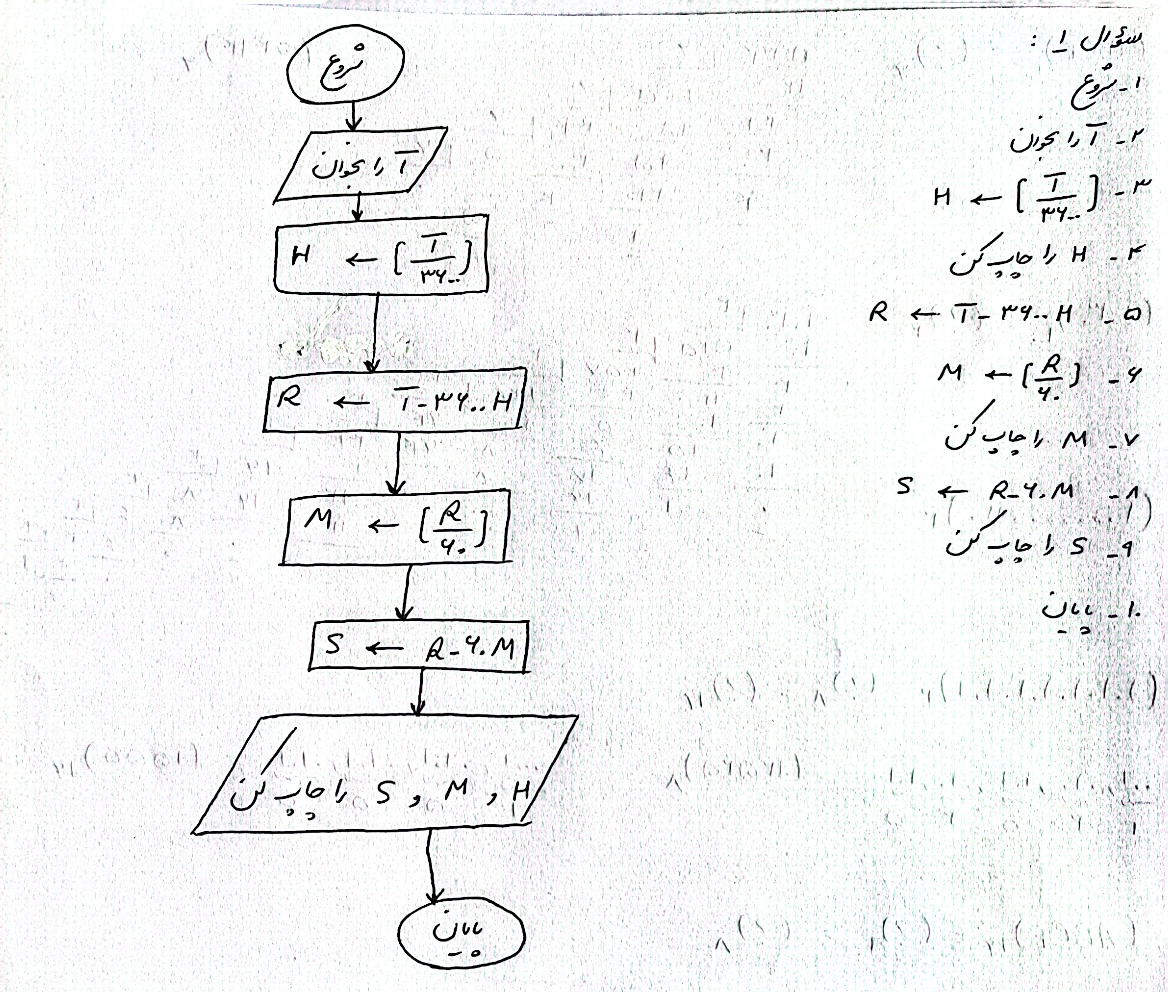 سؤال ۱ :
۱- شروع
۲- T را بخوان
۳- H ← [T/۳۶۰۰]
۴- H را چاپ کن
۵- R ← T-۳۶۰۰H
۶- M ← [R/۶۰]
۷- M را چاپ کن
۸- S ← R-۶۰M
۹- S را چاپ کن
۱۰- پایان
شروع
T را بخوان
H ← [T/۳۶۰۰]
R ← T-۳۶۰۰H
M ← [R/۶۰]
S ← R-۶۰M
H , M , S را چاپ کن
پایان